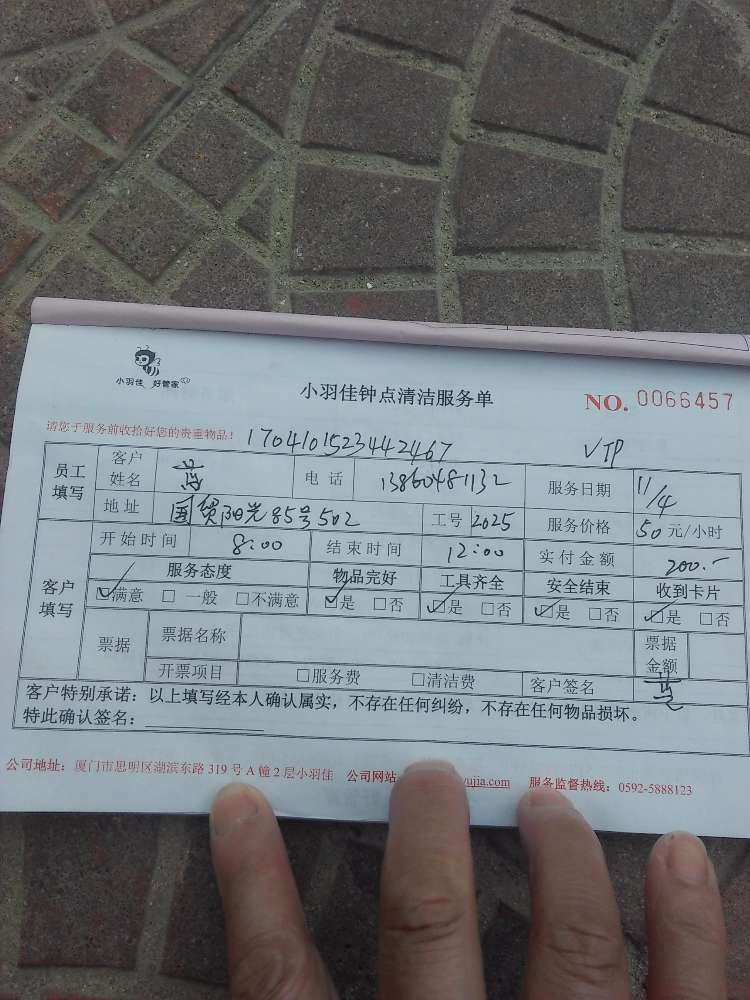 小羽佳 好管家
小羽佳钟点清洁服务单
NO. 0066457
请您于服务前收拾好您的贵重物品！ 1704101523442467 VIP
员工填写 客户姓名 电话 13860481132 服务日期 11/4
地址 国贸阳光85号502 工号 2025 服务价格 50元/小时
客户填写 开始时间 8:00 结束时间 12:00 实付金额 200.-
服务态度 物品完好 工具齐全 安全结束 收到卡片
☑满意 □一般 □不满意 ☑是 □否 ☑是 □否 ☑是 □否 ☑是 □否
票据 票据名称 票据金额
开票项目 □服务费 □清洁费 客户签名
客户特别承诺：以上填写经本人确认属实，不存在任何纠纷，不存在任何物品损坏。
特此确认签名：
公司地址：厦门市思明区湖滨东路 319 号 A 幢 2 层小羽佳 公司网站 yujia.com 服务监督热线：0592-5888123